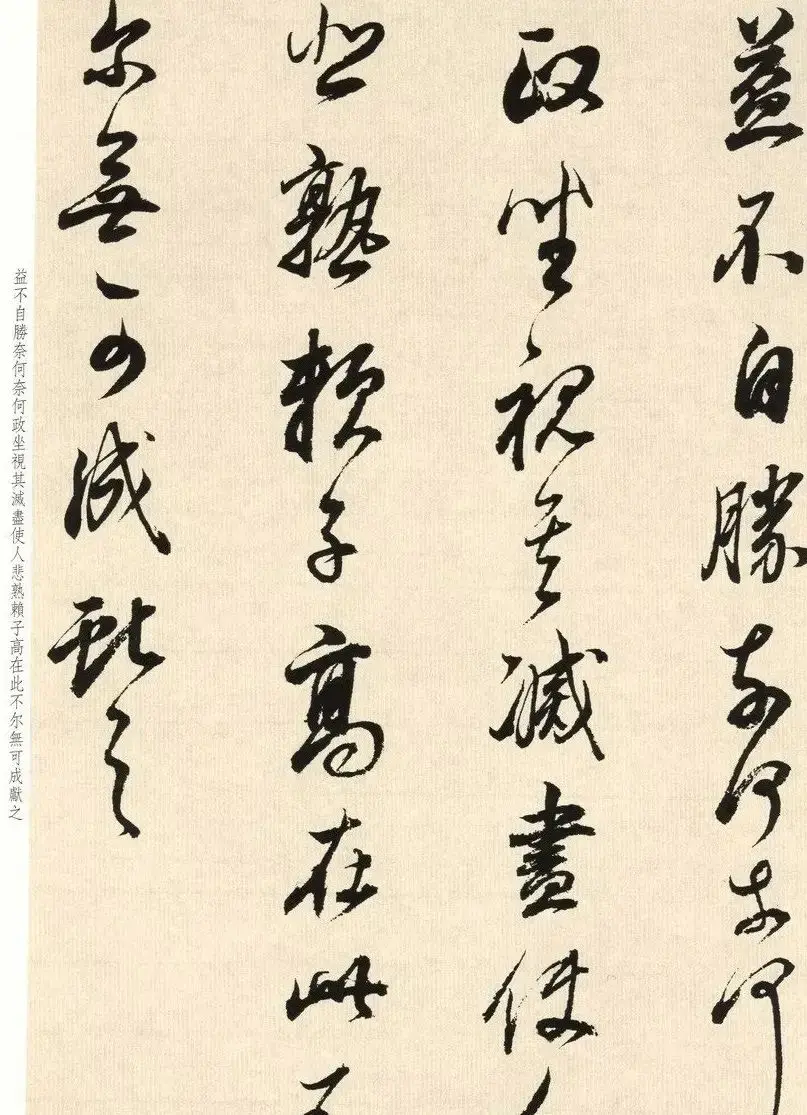 益不自勝奈何奈何
政坐視其滅盡使人
悲熟賴子高在此不
尔無可成獻之
益不自勝奈何奈何政坐視其滅盡使人悲熟賴子高在此不尔無可成獻之